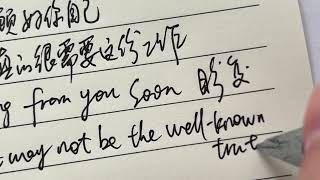 顾好你自己
真的很需要这份工作
g from you soon 盼复
may not be the well-known
trut